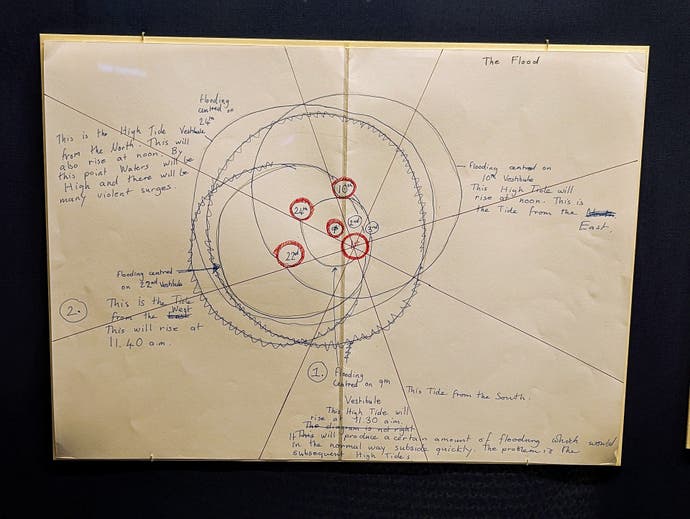 The Flood
flooding
centred on
24th
This is the High Tide Vestibule
from the North. This will
also rise at noon. By
this point Waters will be
High and there will be
many violent surges.
flooding centred on
10th Vestibule
This High Tide will
rise at noon. This is
the Tide from the
East.
10th
24th
9
2nd
3rd
22nd
flooding centred
on 22nd Vestibule
2.
This Is the Tide
from the West
East
This will rise at
11.40 a.m.
1.
flooding
centred on 9th
Vestibule
This Tide from the South.
This High Tide will
rise at 11.30 a.m.
The diagram is not right
This will produce a certain amount of flooding which would
in the normal way subside quickly. The problem is the
subsequent High Tides